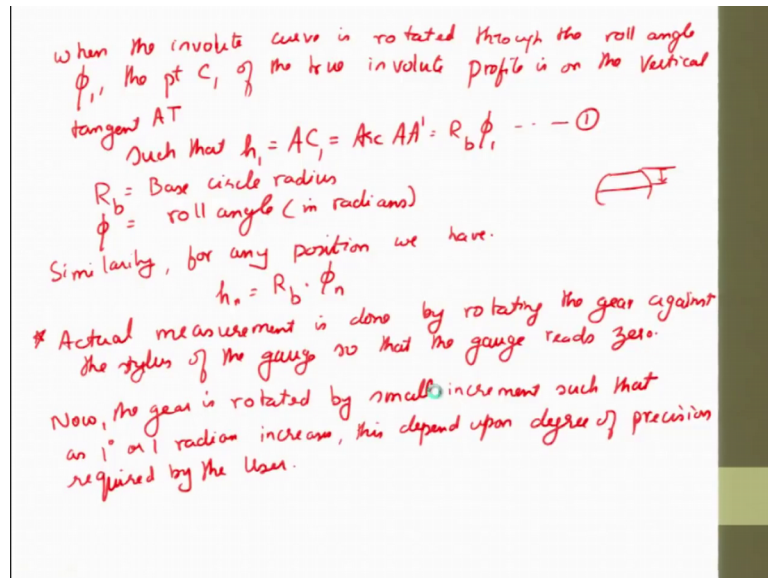 when the involute curve is rotated through the roll angle
ϕ₁, the pt C₁ of the true involute profile is on the Vertical
tangent AT
Such that h₁ = AC₁ = Arc AA' = R_b ϕ₁ --- — ①
R_b = Base circle radius
ϕ = roll angle (in radians)
Similarity, for any position we have.
hₙ = R_b · ϕₙ
* Actual measurement is done by rotating the gear against
the stylus of the gauge so that the gauge reads zero.
Now, the gear is rotated by small increment such that
as 1° or 1 radian increase, this depend upon degree of precision
required by the User.